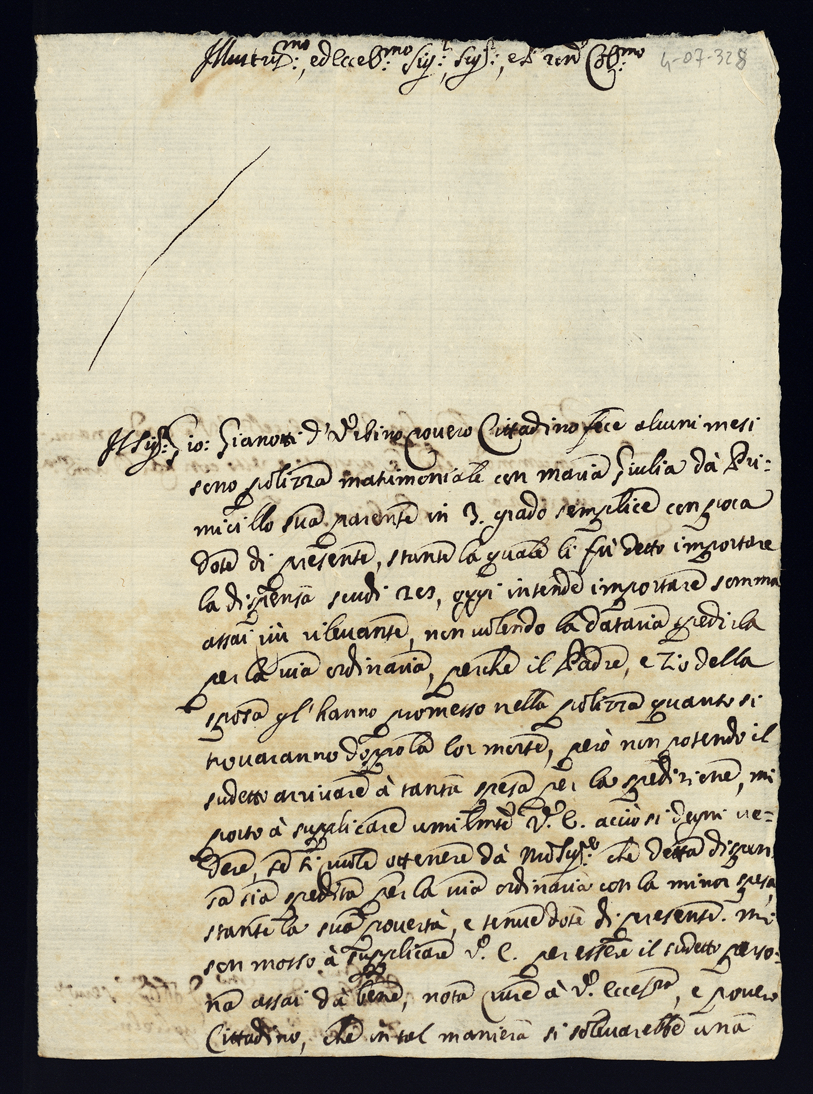 Illustris.mo, ed Ecce.mo Sig.r, Sig.r, e P.rone Col.mo
4-07-328
Il Sig.r Gio: Gianotti d'Urbino povero Cittadino fece alcuni mesi
sono polizza matrimoniale con Maria Giulia dà Pri=
micillo sua parente in 3. grado semplice con poca
dote di presente, stante la quale li fù detto importare
la dispensa scudi, oggi intende importare somma
assai più rilevante, non volendo la dataria spedirla
per la via ordinaria, perche il Padre, e Zio della
sposa gl'hanno promesso nella polizza quanto si
trovaranno doppo la lor morte, però non potendo il
sudetto arrivare à tanta spesa per la spedizione, mi
porto à supplicare umilm.te V.E. acciò si degni ve=
dere, se si puole ottenere dà Mons.re che detta dispen
sa sia spedita per la via ordinaria con la minor spesa
stante la sua povertà, e tenue dote di presente. mi
son mosso à supplicare V.E. per essere il sudetto perso=
na assai dà bene, nota pure à V. Eccell.za, e povero
Cittadino, che in tal maniera si solevarebbe una